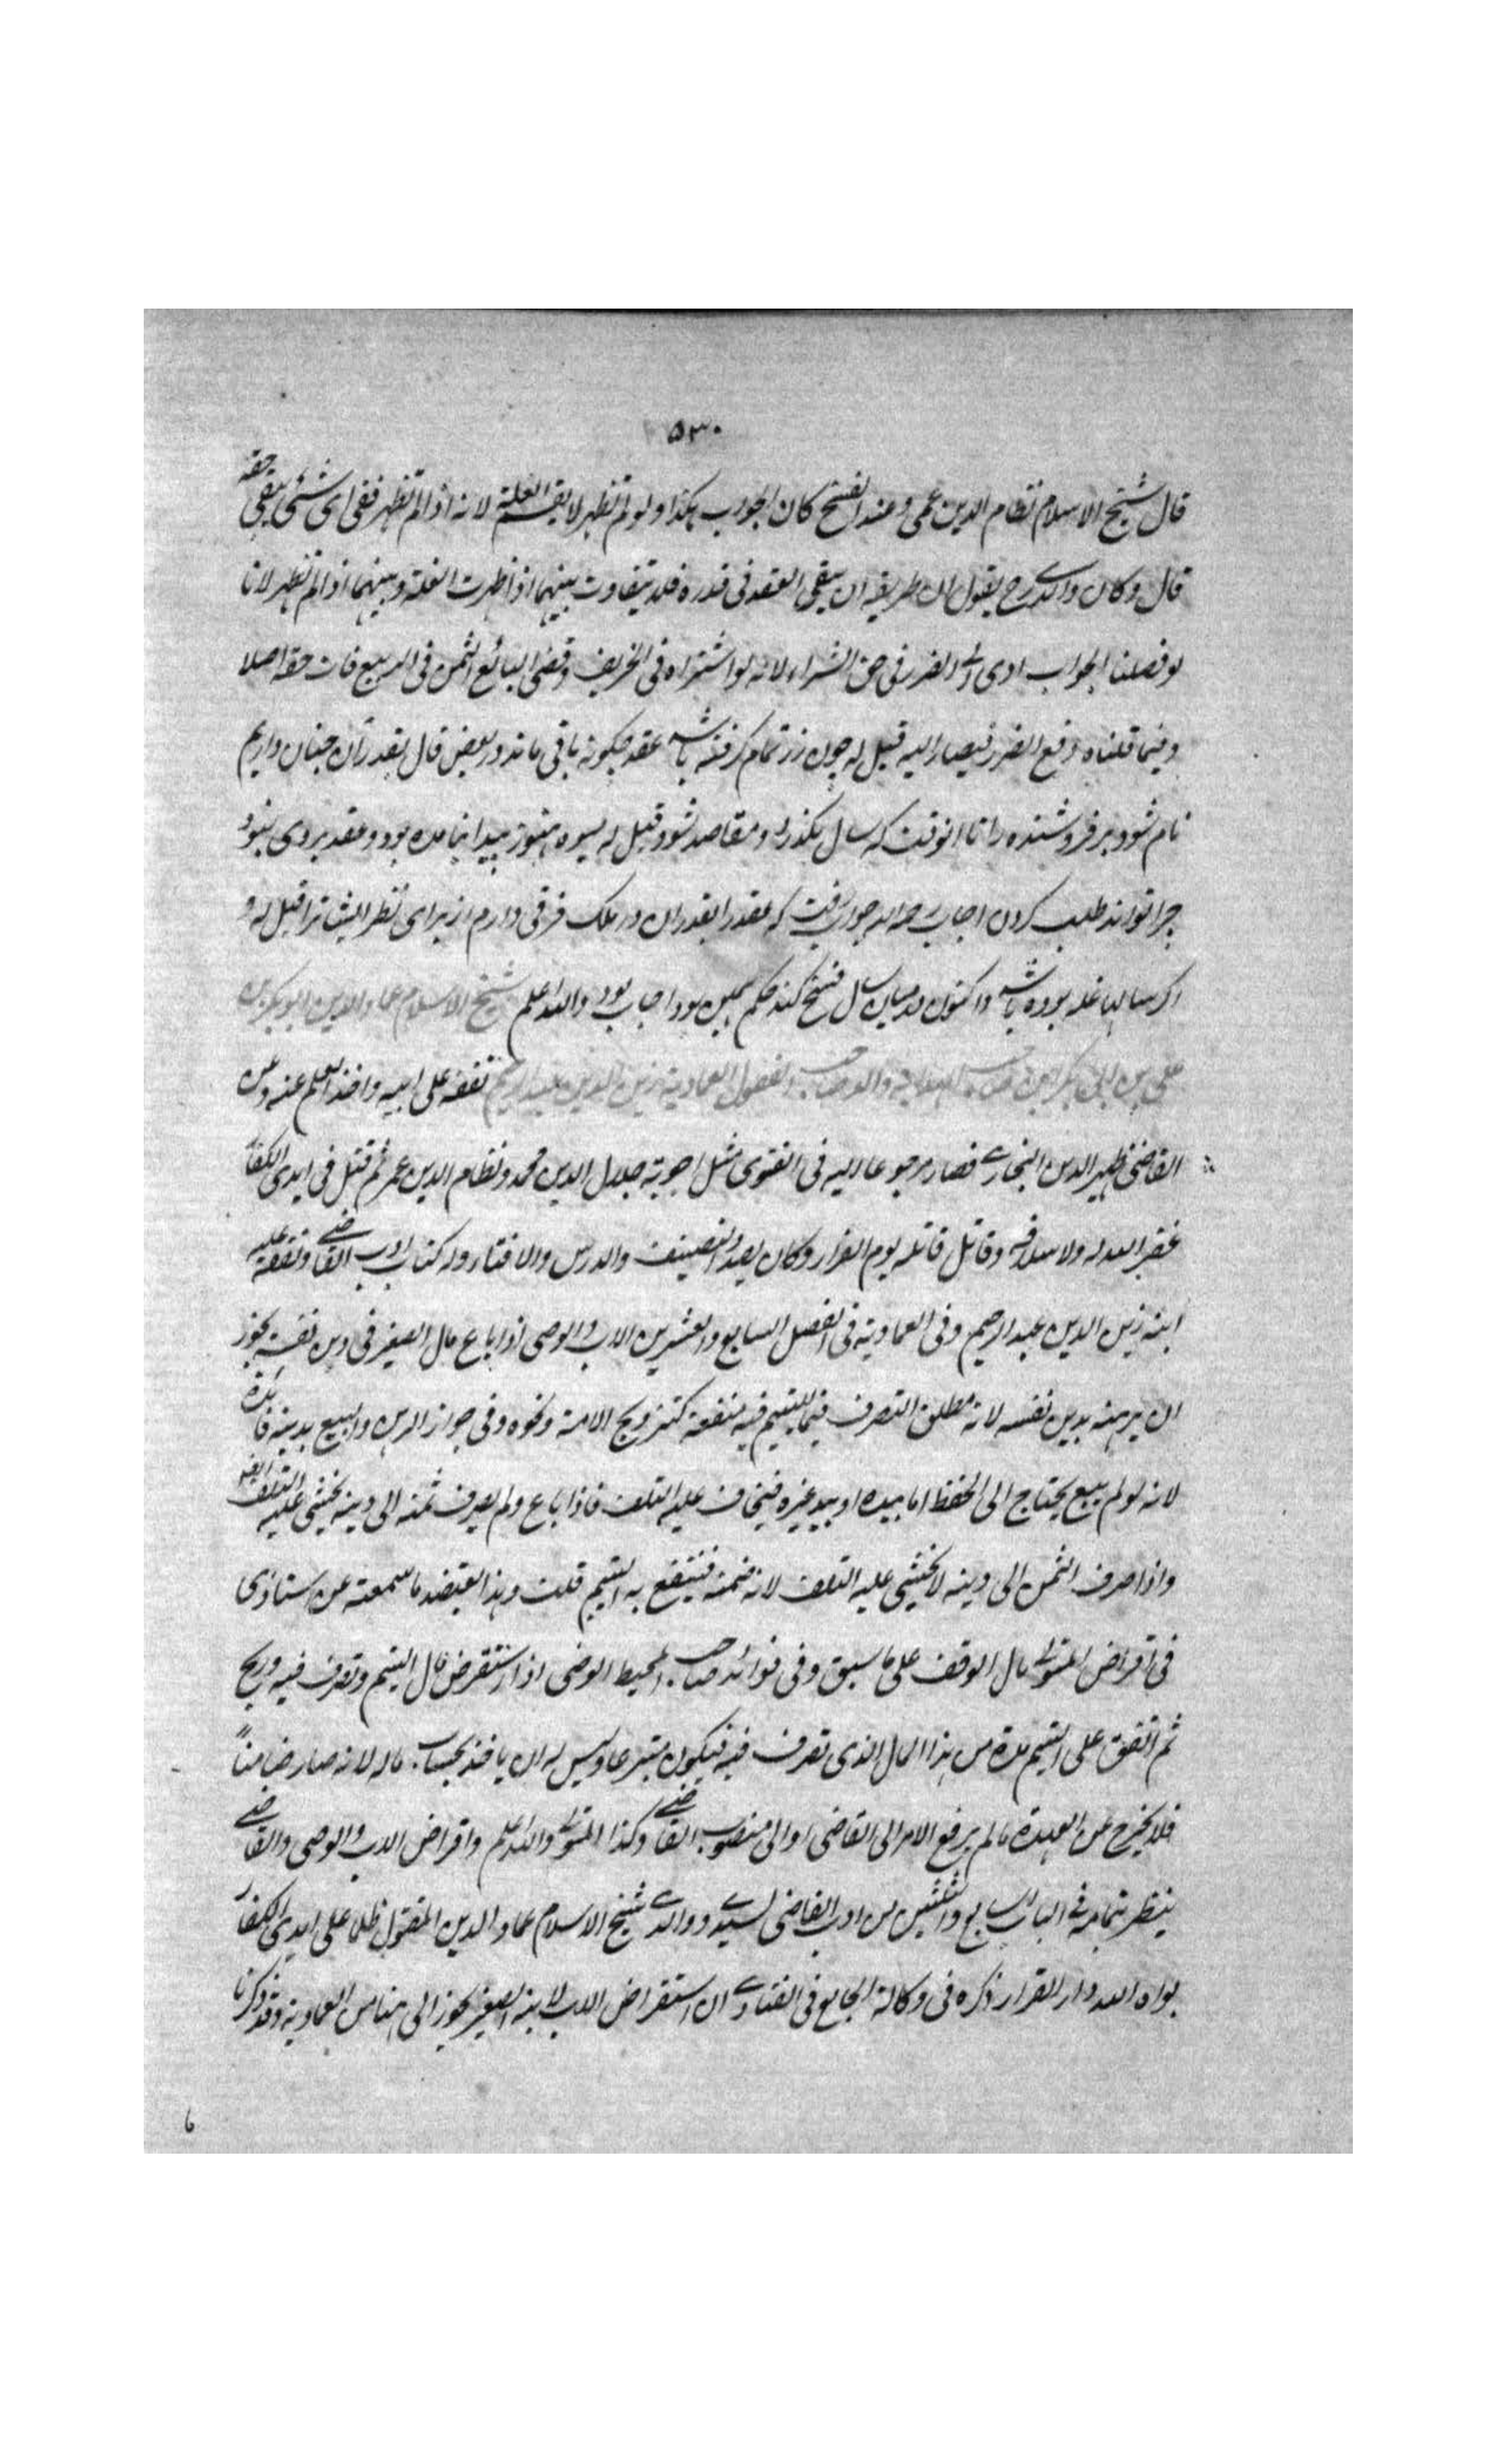 ٥٣٠
قال شيخ الاسلام نظام الدين عمى وعند الفسخ كان الجواب هكذا ولو لم تظهر لا يقسم الغلة لانه اذا لم تظهر ففى اى شئ يبقى حقه
قال وكان والدى رح يقول ان طريقه ان يبقى العقد فى قدره فلا يتفاوت بينهما اذا ظهرت الغلة وبينهما اذا لم تظهر لانا
لو فصلنا الجواب ادى الى الضرر فى حق الشراء لانه لو اشتراه فى الخريف وقضى البائع الثمن فى الربيع فات حقه اصلا
وفيما قلناه دفع الضرر فيصار اليه قيل له چون زر تمام گرفته باشد عقد چگونه باقى ماند در بعض قال بقدر آن چنان داريم
نام شود بر فروشنده را تا انوقت كه سال بگذرد ومقاصد شود قيل له ميوه هنوز پيدا نيامده بود وعقد بروى نبود
چرا تواند طلب كردن اجاب رحمه الله جواب گفت كه عقد را بقدر ان در ملك فرقى دارم از براى نظر ايشانرا قيل له و
اگر سالها غله بوده باشد واكنون در ميان سال فسخ كند حكم همين بود اجاب بود والله اعلم شيخ الاسلام عماد الدين ابو بكر بن
على بن ابى بكر ابن صاحب الهداية والد صاحب الفصول العمادية زين الدين عبد الرحيم تفقه على ابيه واخذ العلم عنه وعن
القاضى ظهير الدين البخارى فصار مرجوعا اليه فى الفتوى مثل اجوبة جلال الدين محمد ونظام الدين عمر ثم قتل فى ايدى الكفار
غفر الله له ولاسلافه وقاتل قاتله يوم الفرار وكان بعيد التصنيف والدرس والافتاء وله كتاب ادب القاضى وتفقه عليه
ابنه زين الدين عبد الرحيم وفى العمادية فى الفصل السابع والعشرين الاب والوصى اذا باع مال الصغير فى دين نفسه يجوز
ان يرهنه بدين نفسه لانه مطلق التصرف فيما لليتيم فيه منفعة كتزويج الامة ونحوه وفى جواز الرهن والبيع بدينه فائدة
لانه لو لم يبع يحتاج الى الحفظ اما بيده او بيد غيره فيخاف عليه التلف فاذا باع ولم يصرف ثمنه الى دينه يخشى عليه التلف ايضا
واذا صرف الثمن الى دينه لا يخشى عليه التلف لانه ضمنه فينتفع به اليتيم قلت وهذا يعضد ما سمعته عن استاذى
فى اقراض المتولى مال الوقف على ما سبق وفى فوائد صاحب المحيط الوصى اذا استقرض مال اليتيم وتصرف فيه وربح
ثم انفق على اليتيم مدة من هذا المال الذى تصرف فيه فيكون متبرعا وليس له ان ياخذ بحساب ماله لانه صار ضامنا
فلا يخرج عن العهدة ما لم يرفع الامر الى القاضى او الى منصوب القاضى وكذا المتولى والله اعلم واقراض الاب والوصى والقاضى
ينظر تمامه فى الباب السابع والثلثين من ادب القاضى لسيدى ووالدى شيخ الاسلام عماد الدين المقتول ظلما على ايدى الكفار
بواه الله دار القرار ذكره فى وكالة الجامع فى الفتاوى ان استقراض الاب لابنه الصغير يجوز الى هنا من العمادية وقد ذكرنا